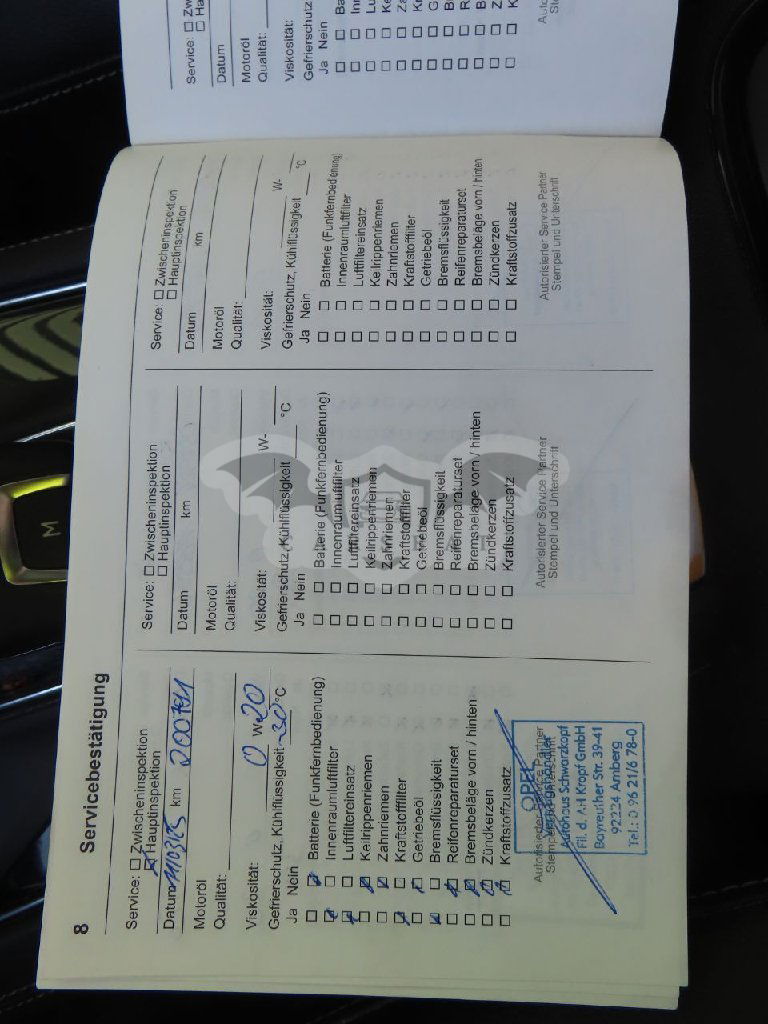 8 Servicebestätigung
Service: ☐ Zwischeninspektion
☒ Hauptinspektion
Datum km
Motoröl
Qualität:
Viskosität: 0 W- 20
Gefrierschutz, Kühlflüssigkeit -30 °C
Ja Nein
Batterie (Funkfernbedienung)
Innenraumluftfilter
Luftfiltereinsatz
Keilrippenriemen
Zahnriemen
Kraftstofffilter
Getriebeöl
Bremsflüssigkeit
Reifenreparaturset
Bremsbeläge vorn / hinten
Zündkerzen
Kraftstoffzusatz
Autorisierter Service Partner
Stempel und Unterschrift
OPEL
Autohaus Schwarzkopf
Fil. d. A+I Kropf GmbH
Bayreuther Str. 39-41
92224 Amberg
Tel.: 0 96 21/6 78-0
Service: ☐ Zwischeninspektion
☐ Hauptinspektion
Datum km
Motoröl
Qualität:
Viskosität: W-
Gefrierschutz, Kühlflüssigkeit °C
Ja Nein
Batterie (Funkfernbedienung)
Innenraumluftfilter
Luftfiltereinsatz
Keilrippenriemen
Zahnriemen
Kraftstofffilter
Getriebeöl
Bremsflüssigkeit
Reifenreparaturset
Bremsbeläge vorn / hinten
Zündkerzen
Kraftstoffzusatz
Autorisierter Service Partner
Stempel und Unterschrift
Service: ☐ Zwischeninspektion
☐ Hauptinspektion
Datum km
Motoröl
Qualität:
Viskosität: W-
Gefrierschutz, Kühlflüssigkeit °C
Ja Nein
Batterie (Funkfernbedienung)
Innenraumluftfilter
Luftfiltereinsatz
Keilrippenriemen
Zahnriemen
Kraftstofffilter
Getriebeöl
Bremsflüssigkeit
Reifenreparaturset
Bremsbeläge vorn / hinten
Zündkerzen
Kraftstoffzusatz
Autorisierter Service Partner
Stempel und Unterschrift
Service: ☐ Zw
☐ Ha
Datum
Motoröl
Qualität:
Viskosität:
Gefrierschutz
Ja Nein
M